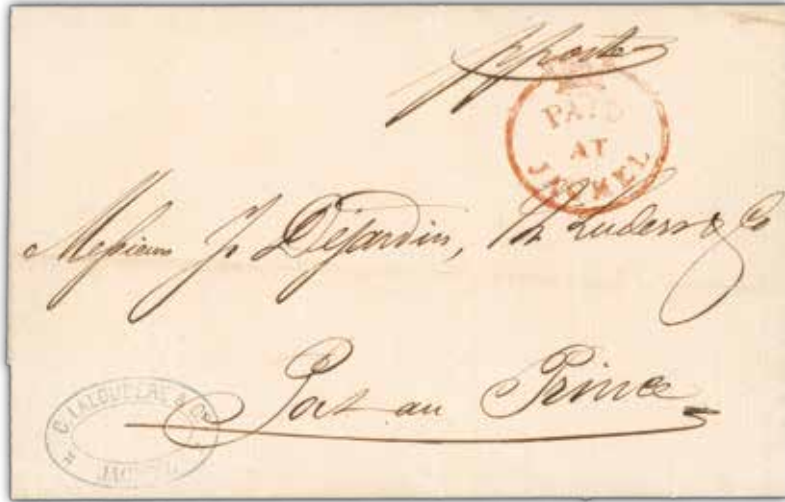 pposte
PAID
AT
JACMEL
Messieurs J. Déjardin, Th Luders & Co
Port au Prince
C. LALOUBÈRE & Co
JACMEL